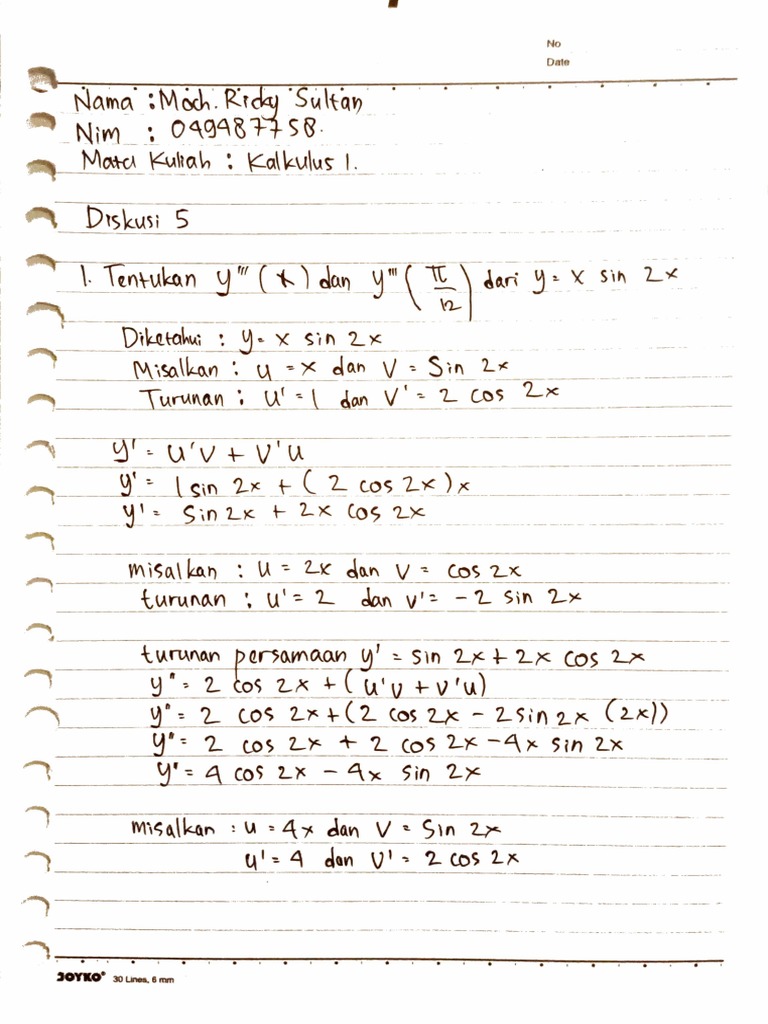 No
Date
Nama : Moch. Ricky Sultan
Nim : 049487758.
Mata Kuliah : Kalkulus 1.
Diskusi 5
1. Tentukan y''' (x) dan y''' (π/12) dari y = x sin 2x
Diketahui : y = x sin 2x
Misalkan : u = x dan v = Sin 2x
Turunan : u' = 1 dan v' = 2 cos 2x
y' = u'v + v'u
y' = 1 sin 2x + ( 2 cos 2x ) x
y' = Sin 2x + 2x cos 2x
misalkan : u = 2x dan v = cos 2x
turunan : u' = 2 dan v' = - 2 sin 2x
turunan persamaan y' = sin 2x + 2x cos 2x
y'' = 2 cos 2x + ( u'v + v'u )
y'' = 2 cos 2x + ( 2 cos 2x - 2 sin 2x (2x))
y'' = 2 cos 2x + 2 cos 2x - 4x sin 2x
y'' = 4 cos 2x - 4x sin 2x
misalkan : u = 4x dan v = Sin 2x
u' = 4 dan v' = 2 cos 2x
JOYKO® 30 Lines, 6 mm